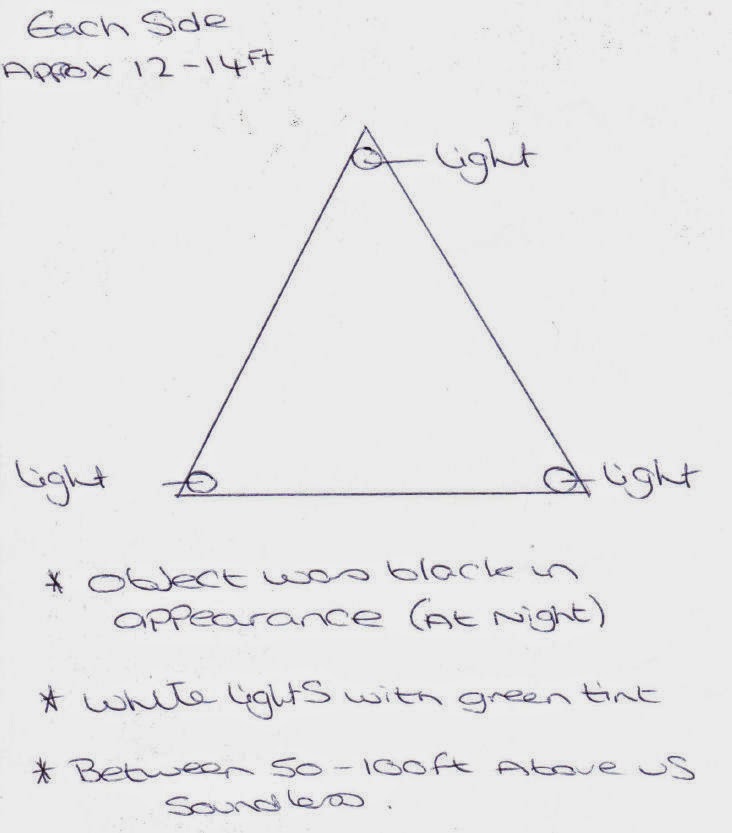 Each Side
Approx 12-14Ft
light
light
light
* Object was black in
appearance (At Night)
* White lights with green tint
* Between 50-100ft Above us
Soundless.